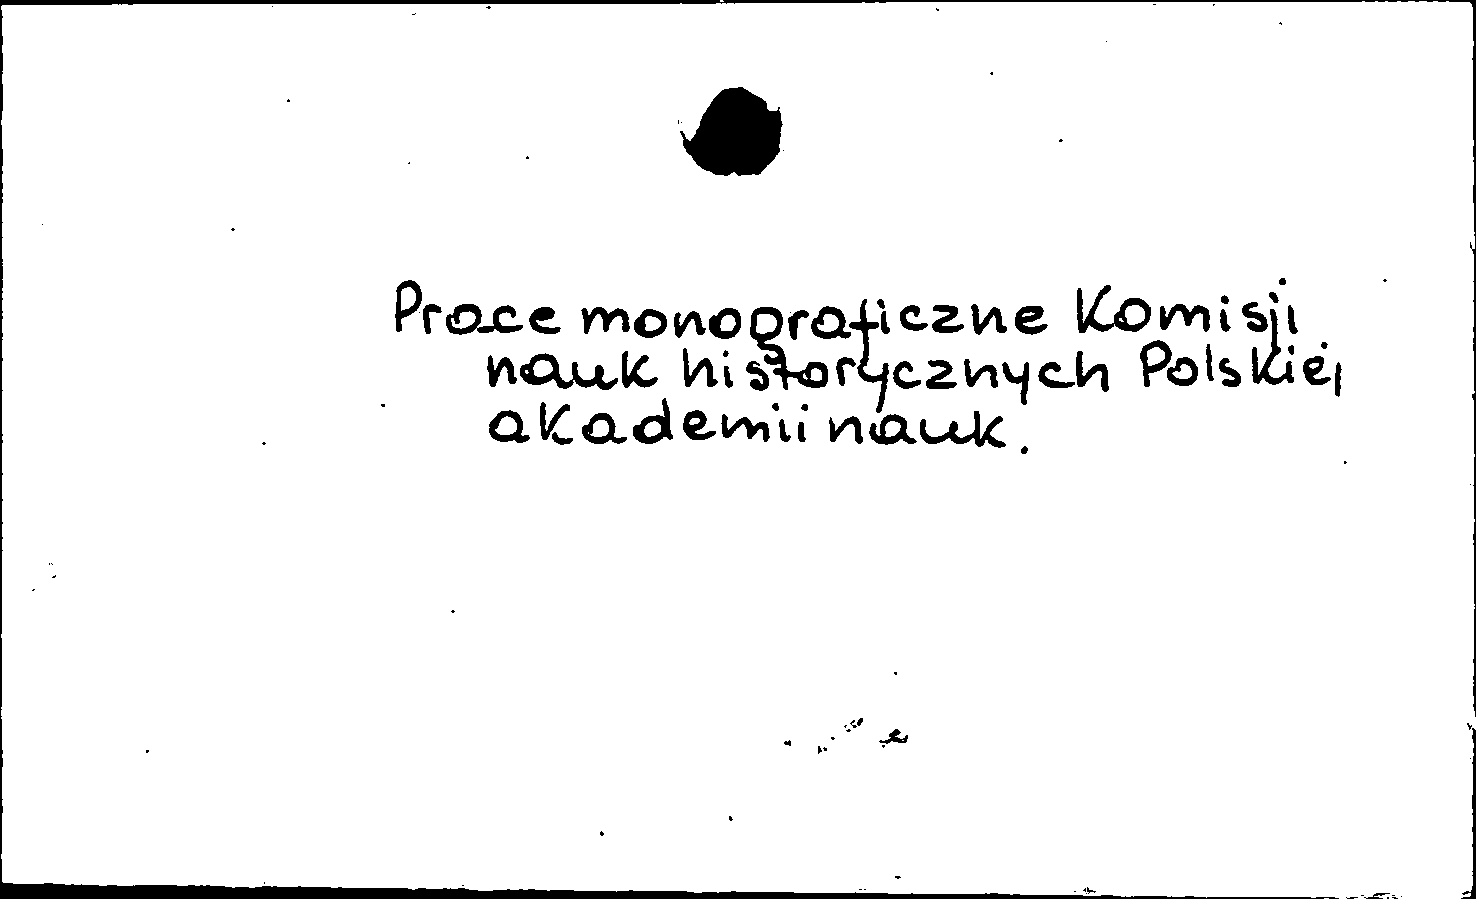 Prace monograficzne Komisji
nauk historycznych Polskiej
akademii nauk.